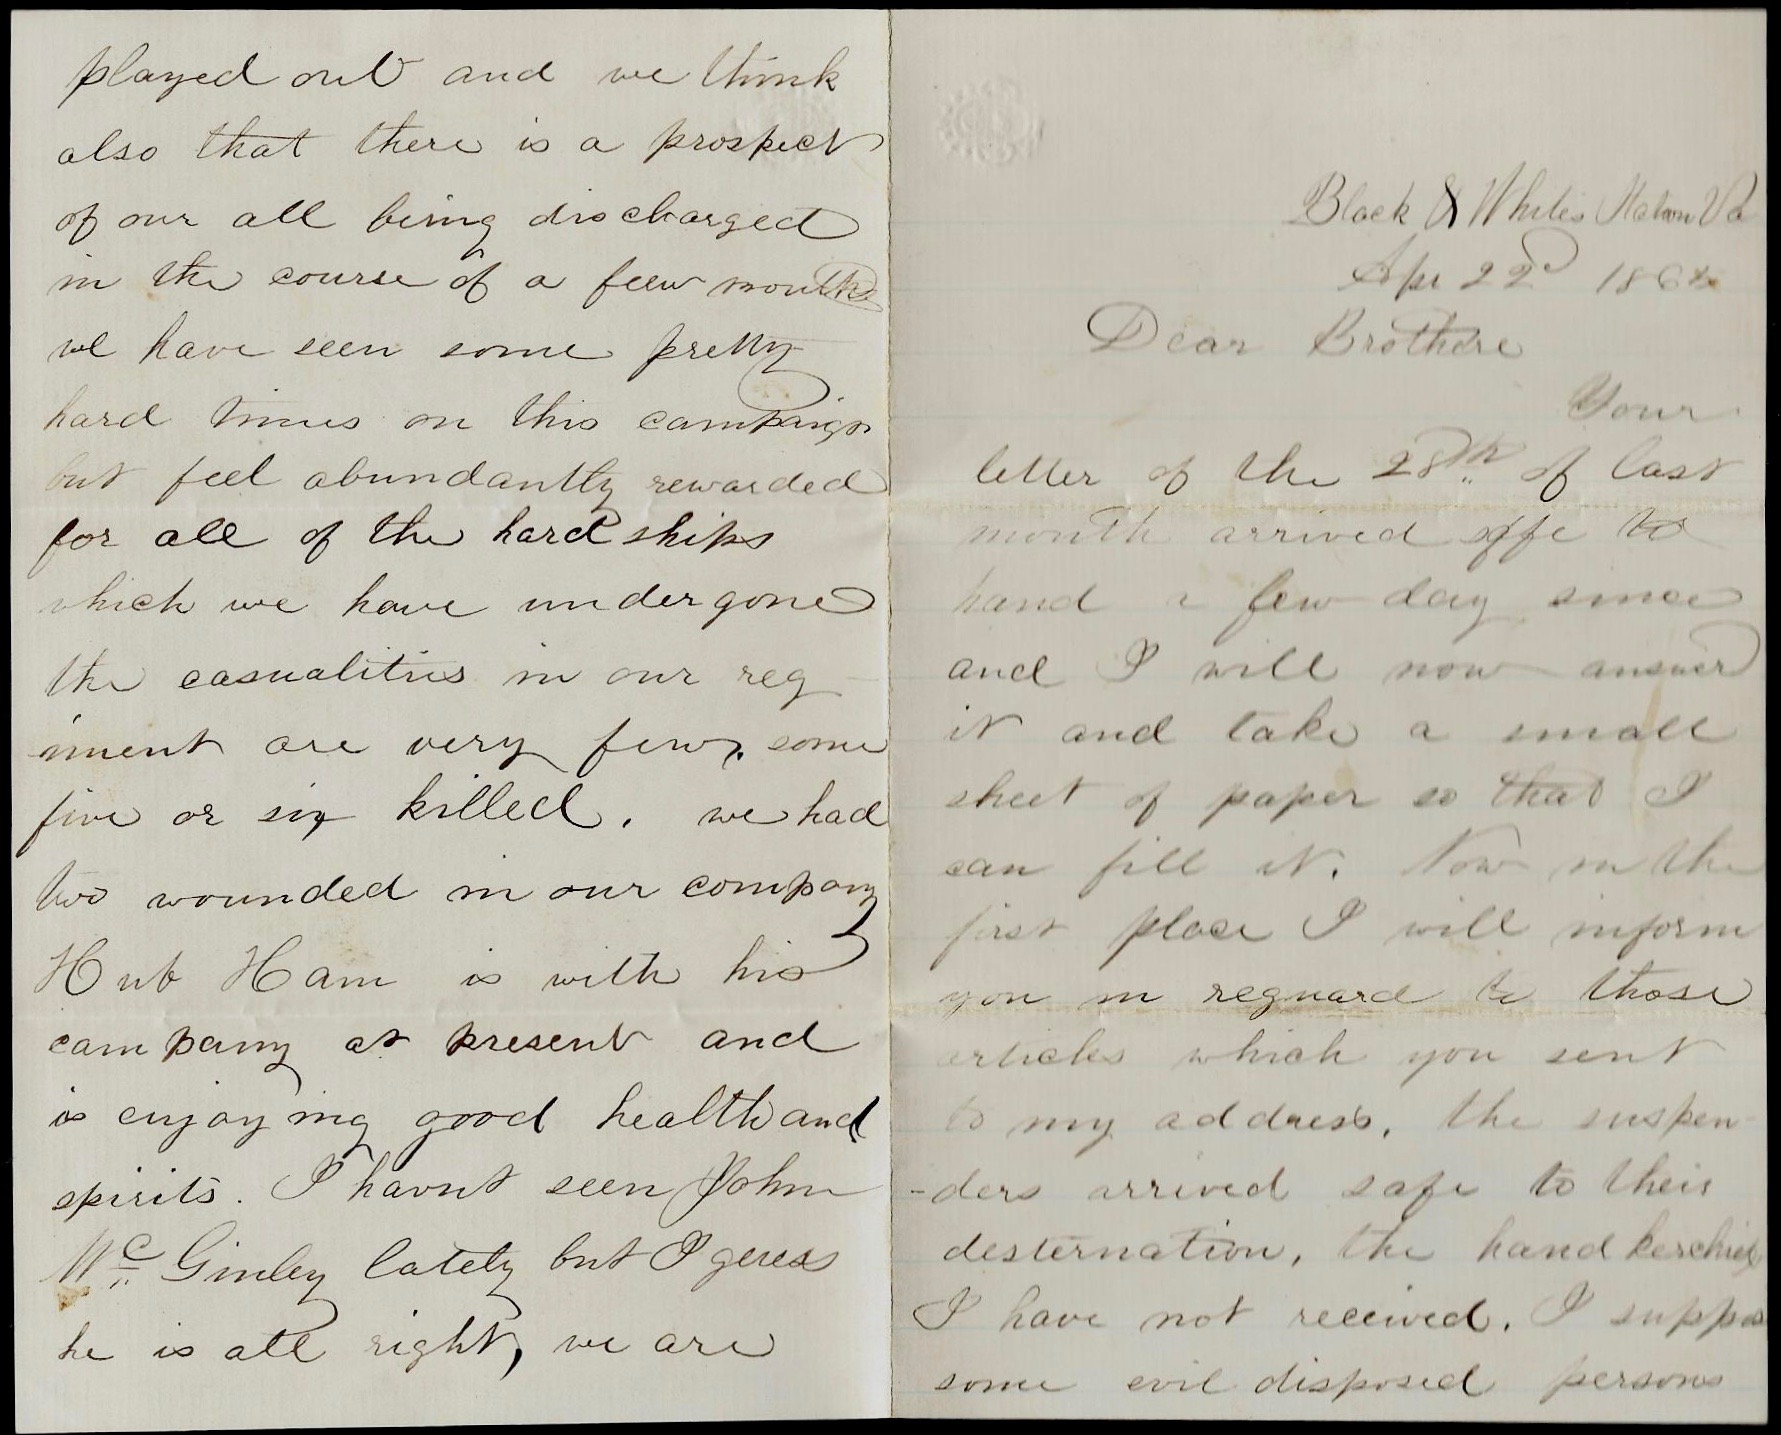 played out and we think
also that there is a prospect
of our all being discharged
in the course of a feew months
we have seen some pretty
hard times on this campaign
but feel abundantly rewarded
for all of the hard ships
which we have undergone
the casualities in our reg
iment are very few, some
five or six killed. we had
two wounded in our company
Hub Ham is with his
company at present and
is enjoying good health and
spirits. I havnt seen John
Mc Ginley lately but I geuss
he is all right, we are
Black & Whites Station Va
Apr 22d 1865
Dear Brothere
Your
letter of the 28th of last
month arrived safe to
hand a few day since
and I will now answer
it and take a small
sheet of paper so that I
can fill it. Now in the
first place I will inform
you in reguard to those
articles which you sent
to my address, the suspen-
-ders arrived safe to their
desternation, the handkerchief
I have not received. I suppos
some evil disposed persons